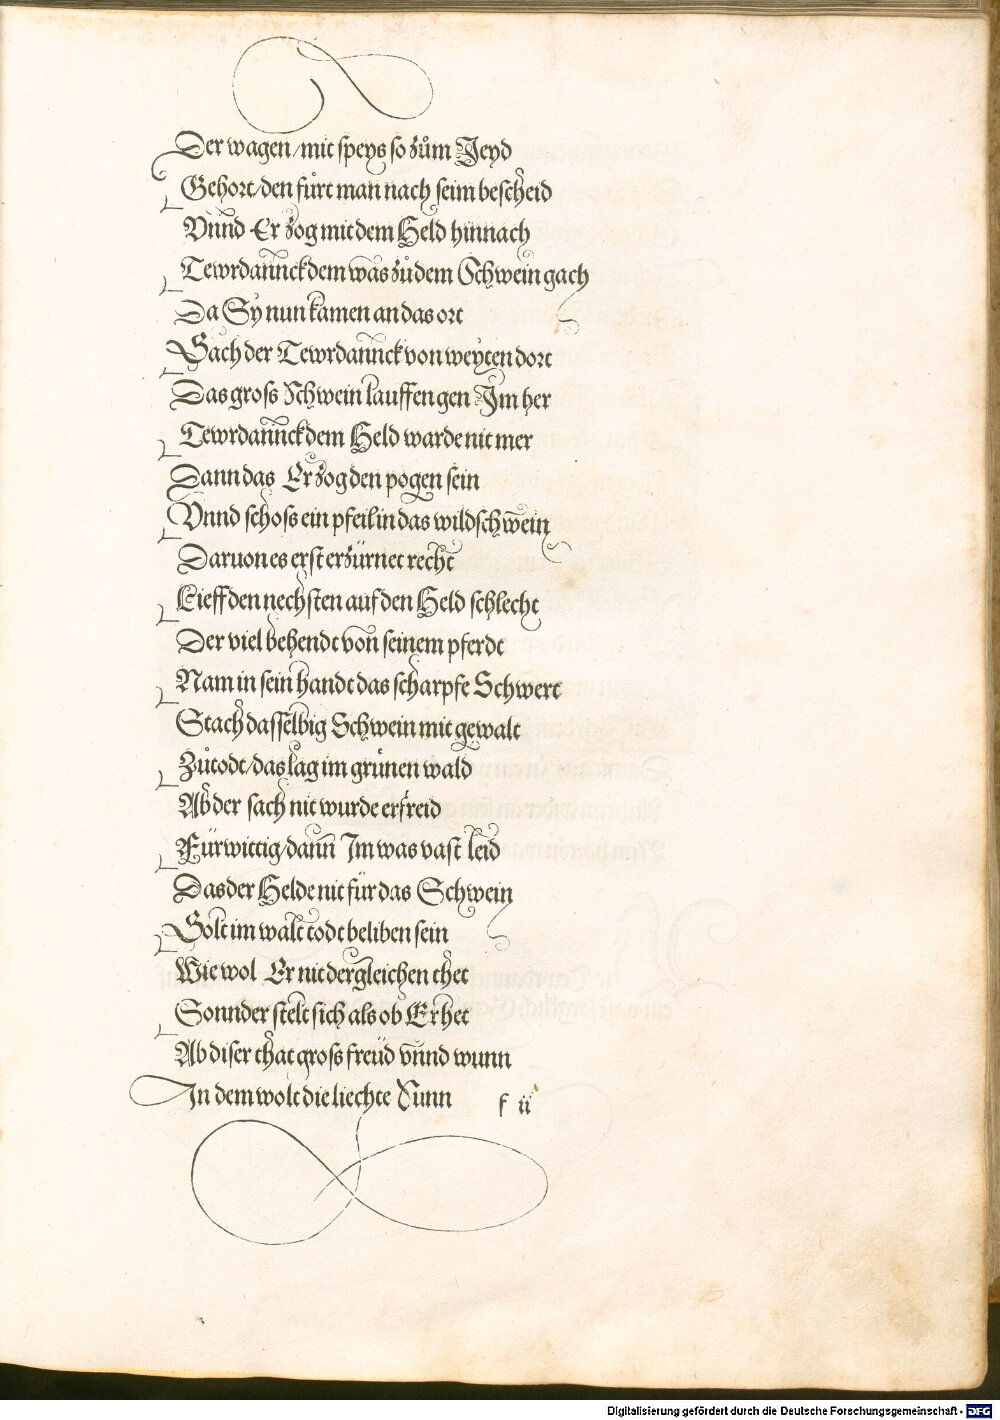 Der wagen/mit speys so zům Jeyd
Gehort/den fůrt man nach seim bescheid
Vnnd Er zog mit dem Held hinnach
Tewrdannck dem was zů dem Schwein gach
Da Sy nun kamen an das ort
Sach der Tewrdannck von weyten dort
Das groſs Schwein lauffen gen Im her
Tewrdannck dem Held warde nit mer
Dann das Er zog den pogen sein
Vnnd schoſs ein pfeil in das wildschwein
Daruon es erst erzürnet recht
Lieff den nechsten auf den Held schlecht
Der viel behendt von seinem pferdt
Nam in sein handt das scharpfe Schwert
Stach dasselbig Schwein mit gewalt
Zůtodt/das lag im grůnen wald
Ab der sach nit wurde erfreid
Fürwittig/dann Im was vast leid
Das der Helde nit für das Schwein
Solt im walt todt beliben sein
Wiewol Er nit dergleichen thet
Sonnder stelt sich als ob Er het
Ab diser that groſs freüd vnnd wunn
In dem wolt die liechte Sunn
f ii
Digitalisierung gefördert durch die Deutsche Forschungsgemeinschaft - DFG